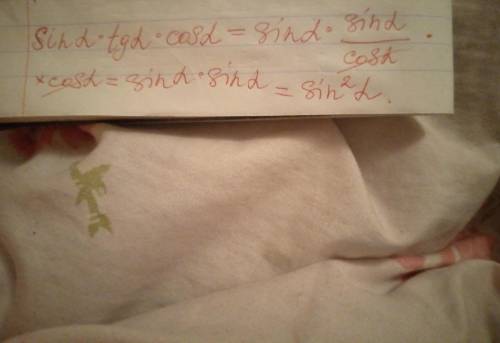 sin α · tg α · cos α = sin α · sin α / cos α ·
× cos α = sin α · sin α = sin² α.